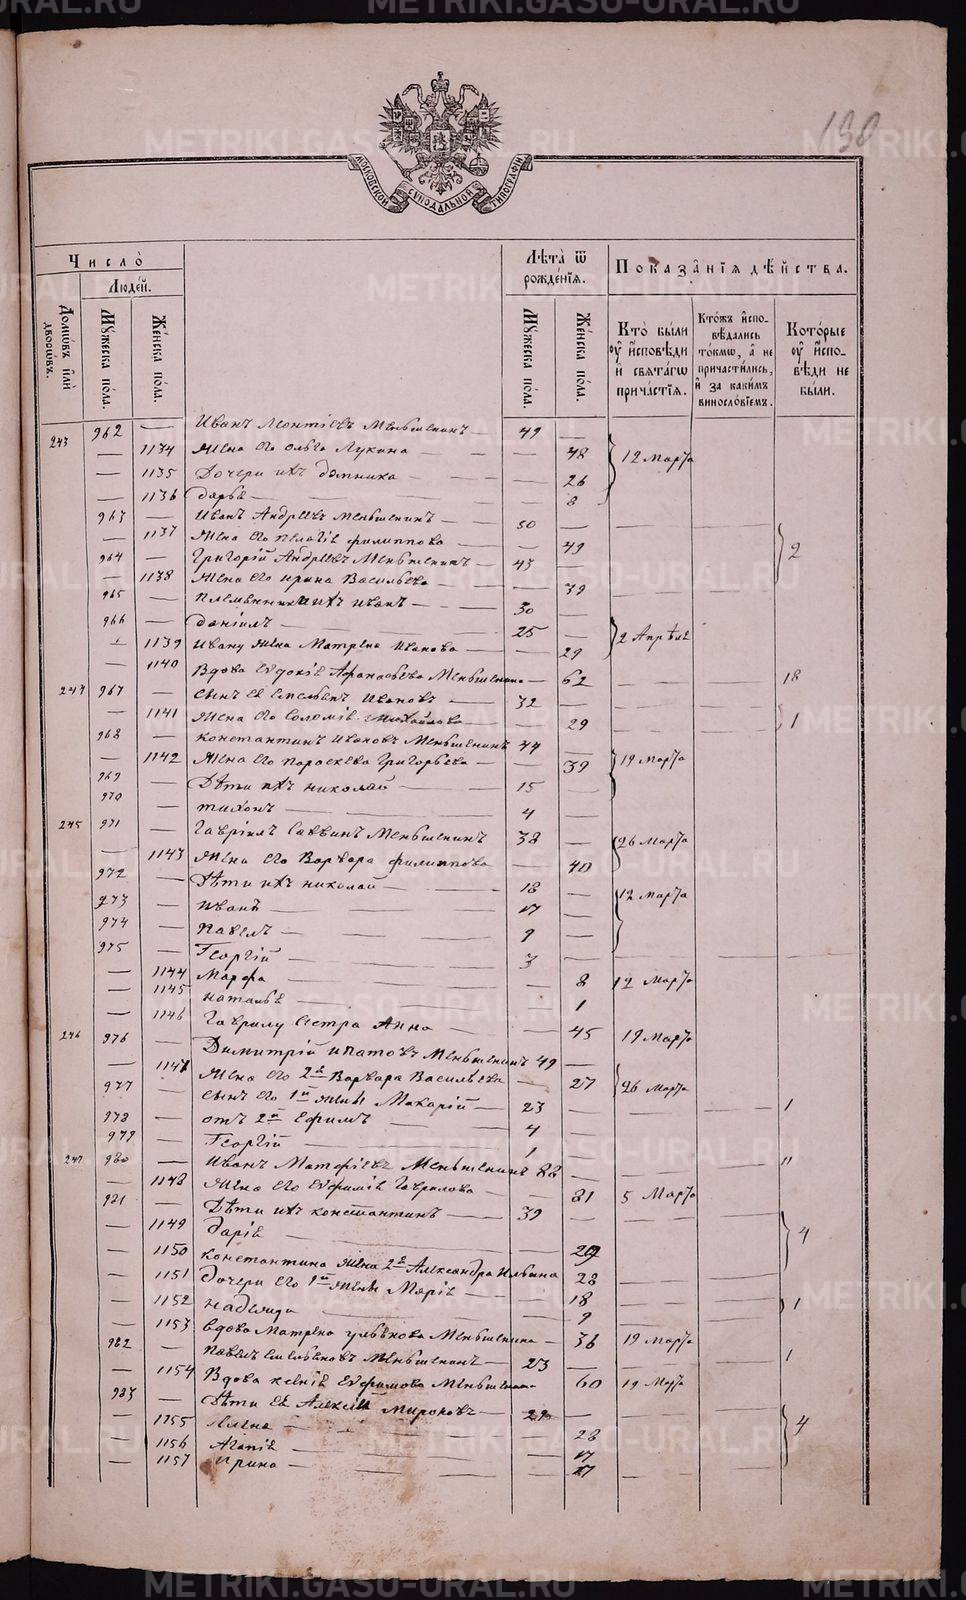 130
МОСКОВСКОЙ СѴНОДАЛЬНОЙ ТИПОГРАФІИ
Число̀
Люде́й.
Домѡ́въ и҆лѝ дворѡ́въ.
Мꙋ́жеска по́ла.
Же́нска по́ла.
Лѣ́та ѿ рожде́нїѧ.
Мꙋ́жеска по́ла.
Же́нска по́ла.
Показа̑нїѧ дѣ́йства.
Кто̀ бы́ли ᲂу҆ и҆́сповѣди и҆ свѧта́гѡ прича́стїѧ.
Кто́жъ и҆спо-вѣ́дались то́кмѡ, а҆ не причасти́лись, и҆ за каки́мъ винословїемъ.
Кото́рые ᲂу҆ и҆́спо-вѣди не бы́ли.
243 962 — Иванъ Леонтіевъ Меньшенинъ — 49 —
— 1134 Жена его Ольга Лукина — — 48 12 Марта
— 1135 Дочери ихъ Домника — — 26
— 1136 Дарья — — 8
963 — Иванъ Андреевъ Меньшенинъ — 50 — — —
— 1137 Жена его Пелагія Филиппова — — 49 2
964 — Григорій Андреевъ Меньшенинъ — 43 —
— 1138 Жена его Ирина Васильева — — 39 — —
965 — Племянники ихъ Иванъ — 30 —
966 — Даніилъ — 25 — 2 Апрѣля
— 1139 Ивану жена Матрена Иванова — — 29
— 1140 Вдова Евдокія Афанасьева Меньшенина — 62 — — 18
244 967 — Сынъ ея Емельянъ Ивановъ — 32 — — —
— 1141 Жена его Соломія Михайлова — — 29 — — 1
968 — Константинъ Ивановъ Меньшенинъ 44 —
— 1142 Жена его Параскева Григорьева — — 39 19 Марта
969 — Дѣти ихъ Николай — 15 —
970 — Тихонъ — 4 —
245 971 — Гавріилъ Саввинъ Меньшенинъ 38 — 26 Марта
— 1143 Жена его Варвара Филиппова — — 40
972 — Дѣти ихъ Николай — 18 — 12 Марта
973 — Иванъ — 17 —
974 — Павелъ — 9 —
975 — Георгій — 3 — — — —
— 1144 Марфа — — 8 12 Марта
— 1145 Наталья — — 1
— 1146 Гаврилу сестра Анна — — 45 19 Марта
246 976 — Димитрій Ипатовъ Меньшенинъ 49 —
— 1147 Жена его 2я Варвара Васильева — — 27 26 Марта
977 — Сынъ его 1й жены Макарій — 23 — — — 1
978 — отъ 2й Ефимъ — 4 —
979 — Георгій — 1 —
247 980 — Иванъ Матфіевъ Меньшенинъ 82 — — — "
— 1148 Жена его Евфимія Гаврилова — — 81 5 Марта
981 — Дѣти ихъ Константинъ — 39 — — —
— 1149 Дарія — — 29 4
— 1150 Константина жена 2я Александра Ильина 28 — —
— 1151 Дочери его 1й жены Марія — — 18 — — 1
— 1152 Надежда — — 9
— 1153 Вдова Матрена Ульянова Меньшенина — 36 19 Марта
982 — Павелъ Емельяновъ Меньшенинъ — 23 — — — 1
— 1154 Вдова Ксенія Евфимова Меньшенина 60 19 Марта
983 — Дѣти ея Алексѣй Мироновъ — 29 — — —
— 1155 — — 28 4
— 1156 Агапія — — 17
— 1157 Ирина — — 17 —
METRIKI.GASO-URAL.RU